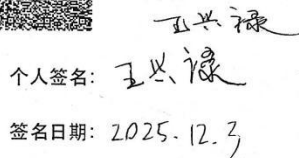 王兴禄
个人签名：王兴禄
签名日期：2025.12.3